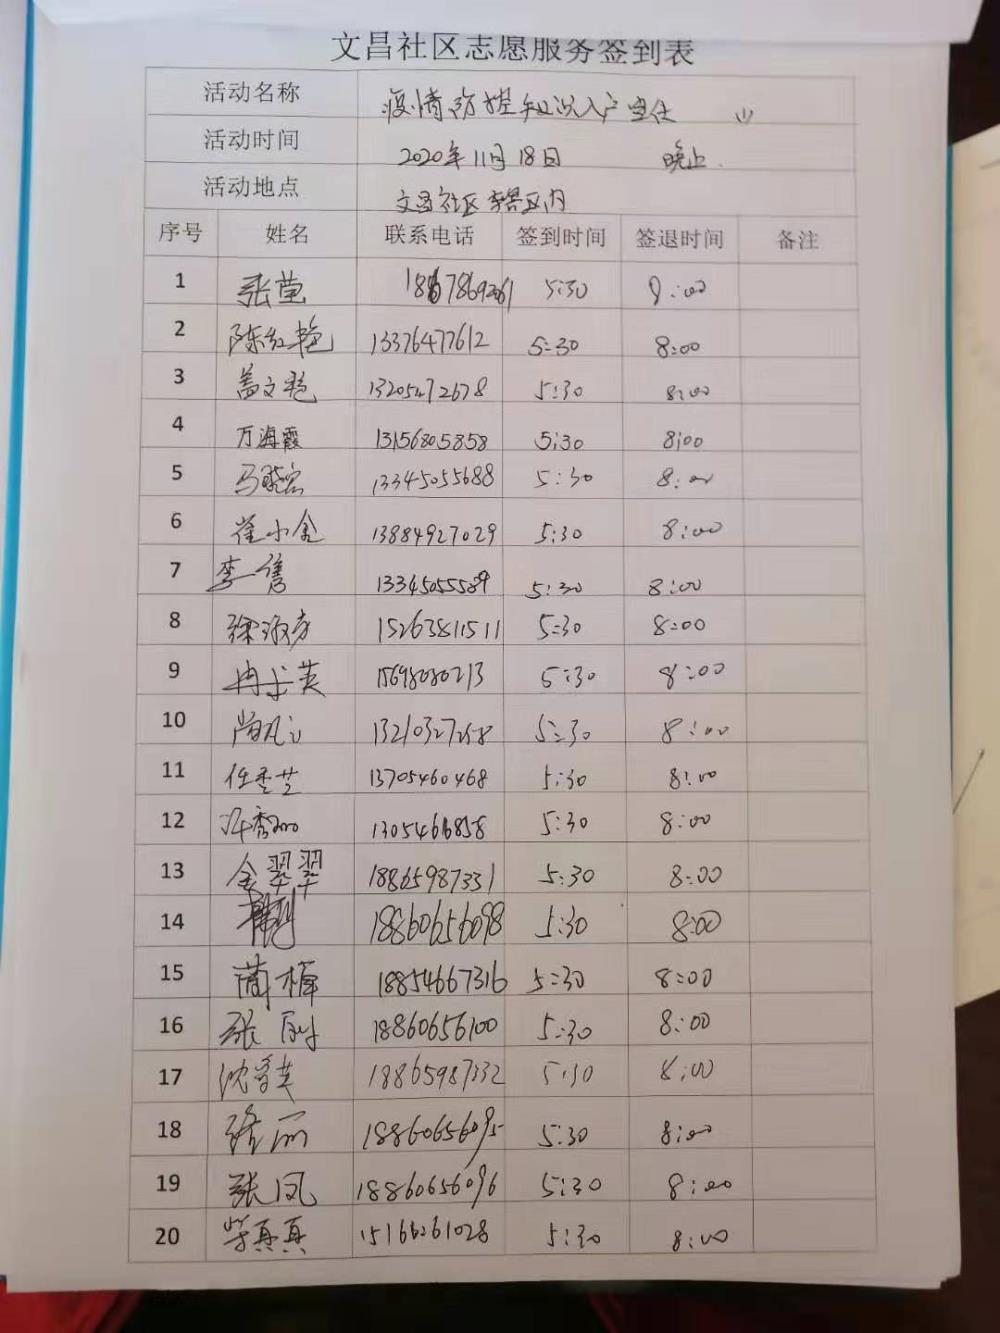 文昌社区志愿服务签到表
活动名称 疫情防控知识入户宣传 (1)
活动时间 2020年11月18日 晚上.
活动地点 文昌社区辖区内
序号 姓名 联系电话 签到时间 签退时间 备注
1 张莹 5:30 8:00
2 陈红艳 13376477612 5:30 8:00
3 盖文艳 13205472678 5:30 8:00
4 万海霞 13156805858 5:30 8:00
5 马晓宏 13345055688 5:30 8:00
6 崔小金 13884927029 5:30 8:00
7 李隽 13345055589 5:30 8:00
8 徐淑芳 15263811511 5:30 8:00
9 冉长英 15698080213 5:30 8:00
10 5:30 8:00
11 任秀芝 13705460468 5:30 8:00
12 5:30 8:00
13 金翠翠 18865987331 5:30 8:00
14 18860656098 5:30 8:00
15 蔺梅 18854667316 5:30 8:00
16 张 18860656100 5:30 8:00
17 沈 18865987332 5:30 8:00
18 丽 18860656095 5:30 8:00
19 张凤 18860656096 5:30 8:00
20 真真 15166261028 5:30 8:00